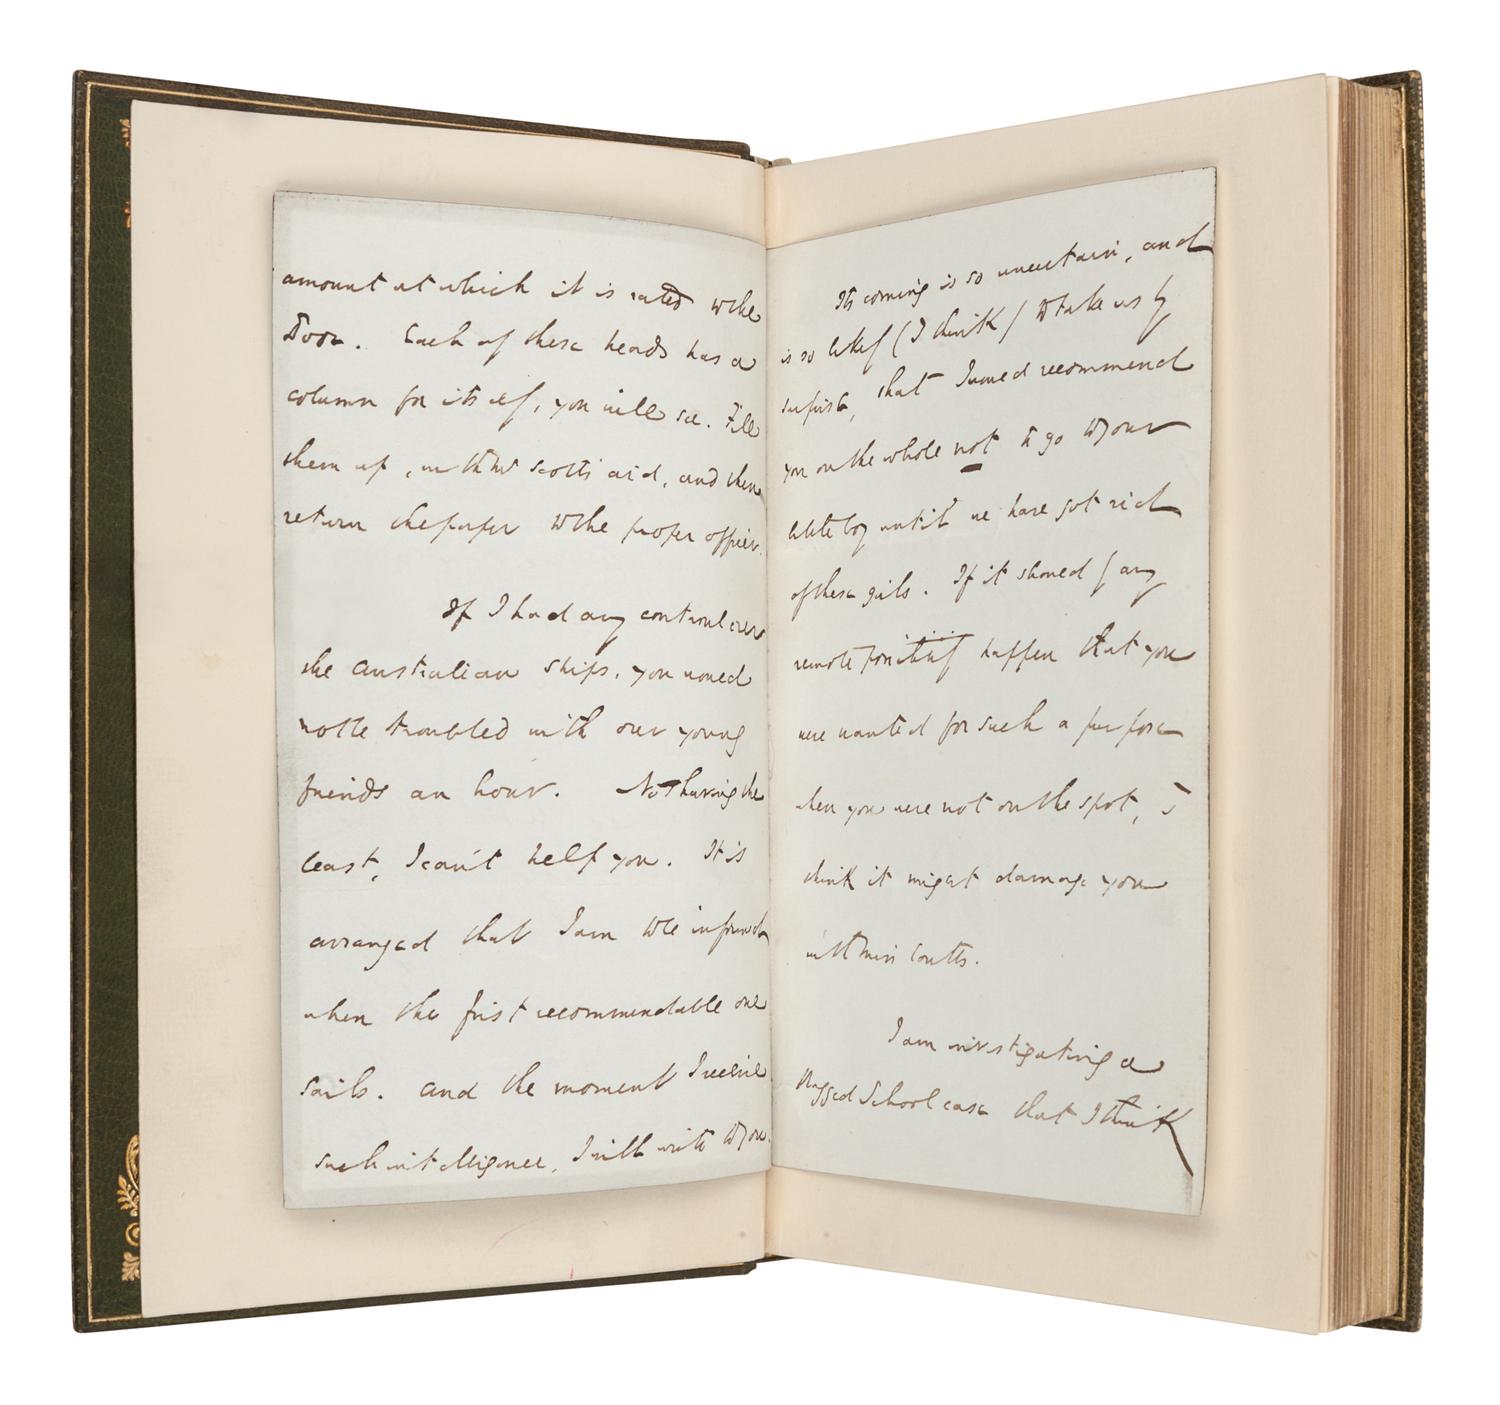 amount at which it is rated to the
Poor. Each of these heads has a
column for itself, you will see. Fill
them up, with Mr Scott's aid, and then
return the paper to the proper officer.
If I had any controul over
the Australian ships, you should
not be troubled with our young
friends an hour. Not having the
least, I can't help you. It is
arranged that I am to be informed
when the first recommendable one
sails. And the moment I receive
such intelligence, I will write to you.
Its coming is so uncertain, and
is so likely (I think) to take us by
surprise, that I would recommend
you on the whole not to go to your
little boy until we have got rid
of these girls. If it should by any
remote possibility happen that you
were wanted for such a purpose
when you were not on the spot, I
think it might damage you
with Miss Coutts.
I am investigating a
Ragged School case that I think